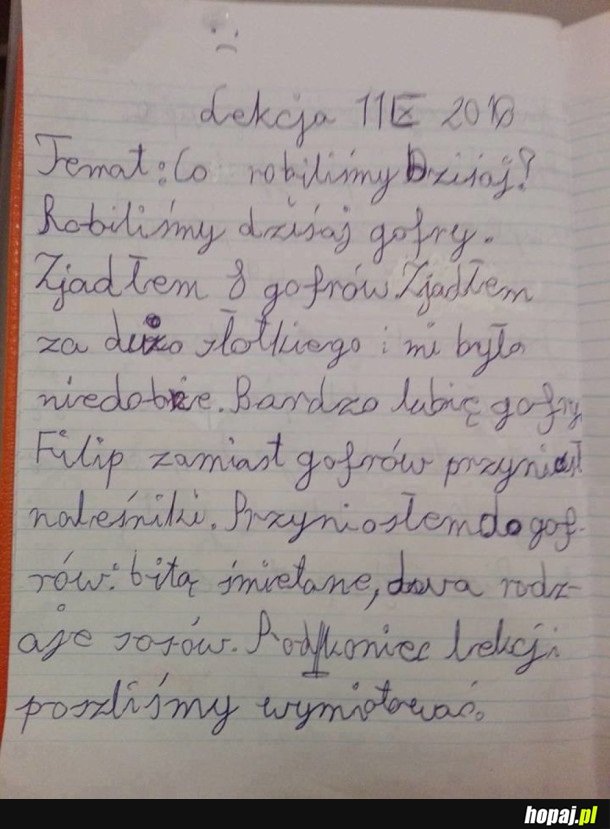 Lekcja 11 IX 2018
Temat: Co robiliśmy Dzisiaj?
Robiliśmy dzisiaj gofry.
Zjadłem 8 gofrów. Zjadłem
za dużo słotkiego i mi było
niedobrze. Bardzo lubię gofry
Filip zamiast gofrów przyniósł
naleśniki. Przyniosłem do gof-
rów: bitą śmietane, dwa rodz-
aje sosów. Pod koniec lekcji
poszliśmy wymiotować.
hopaj.pl